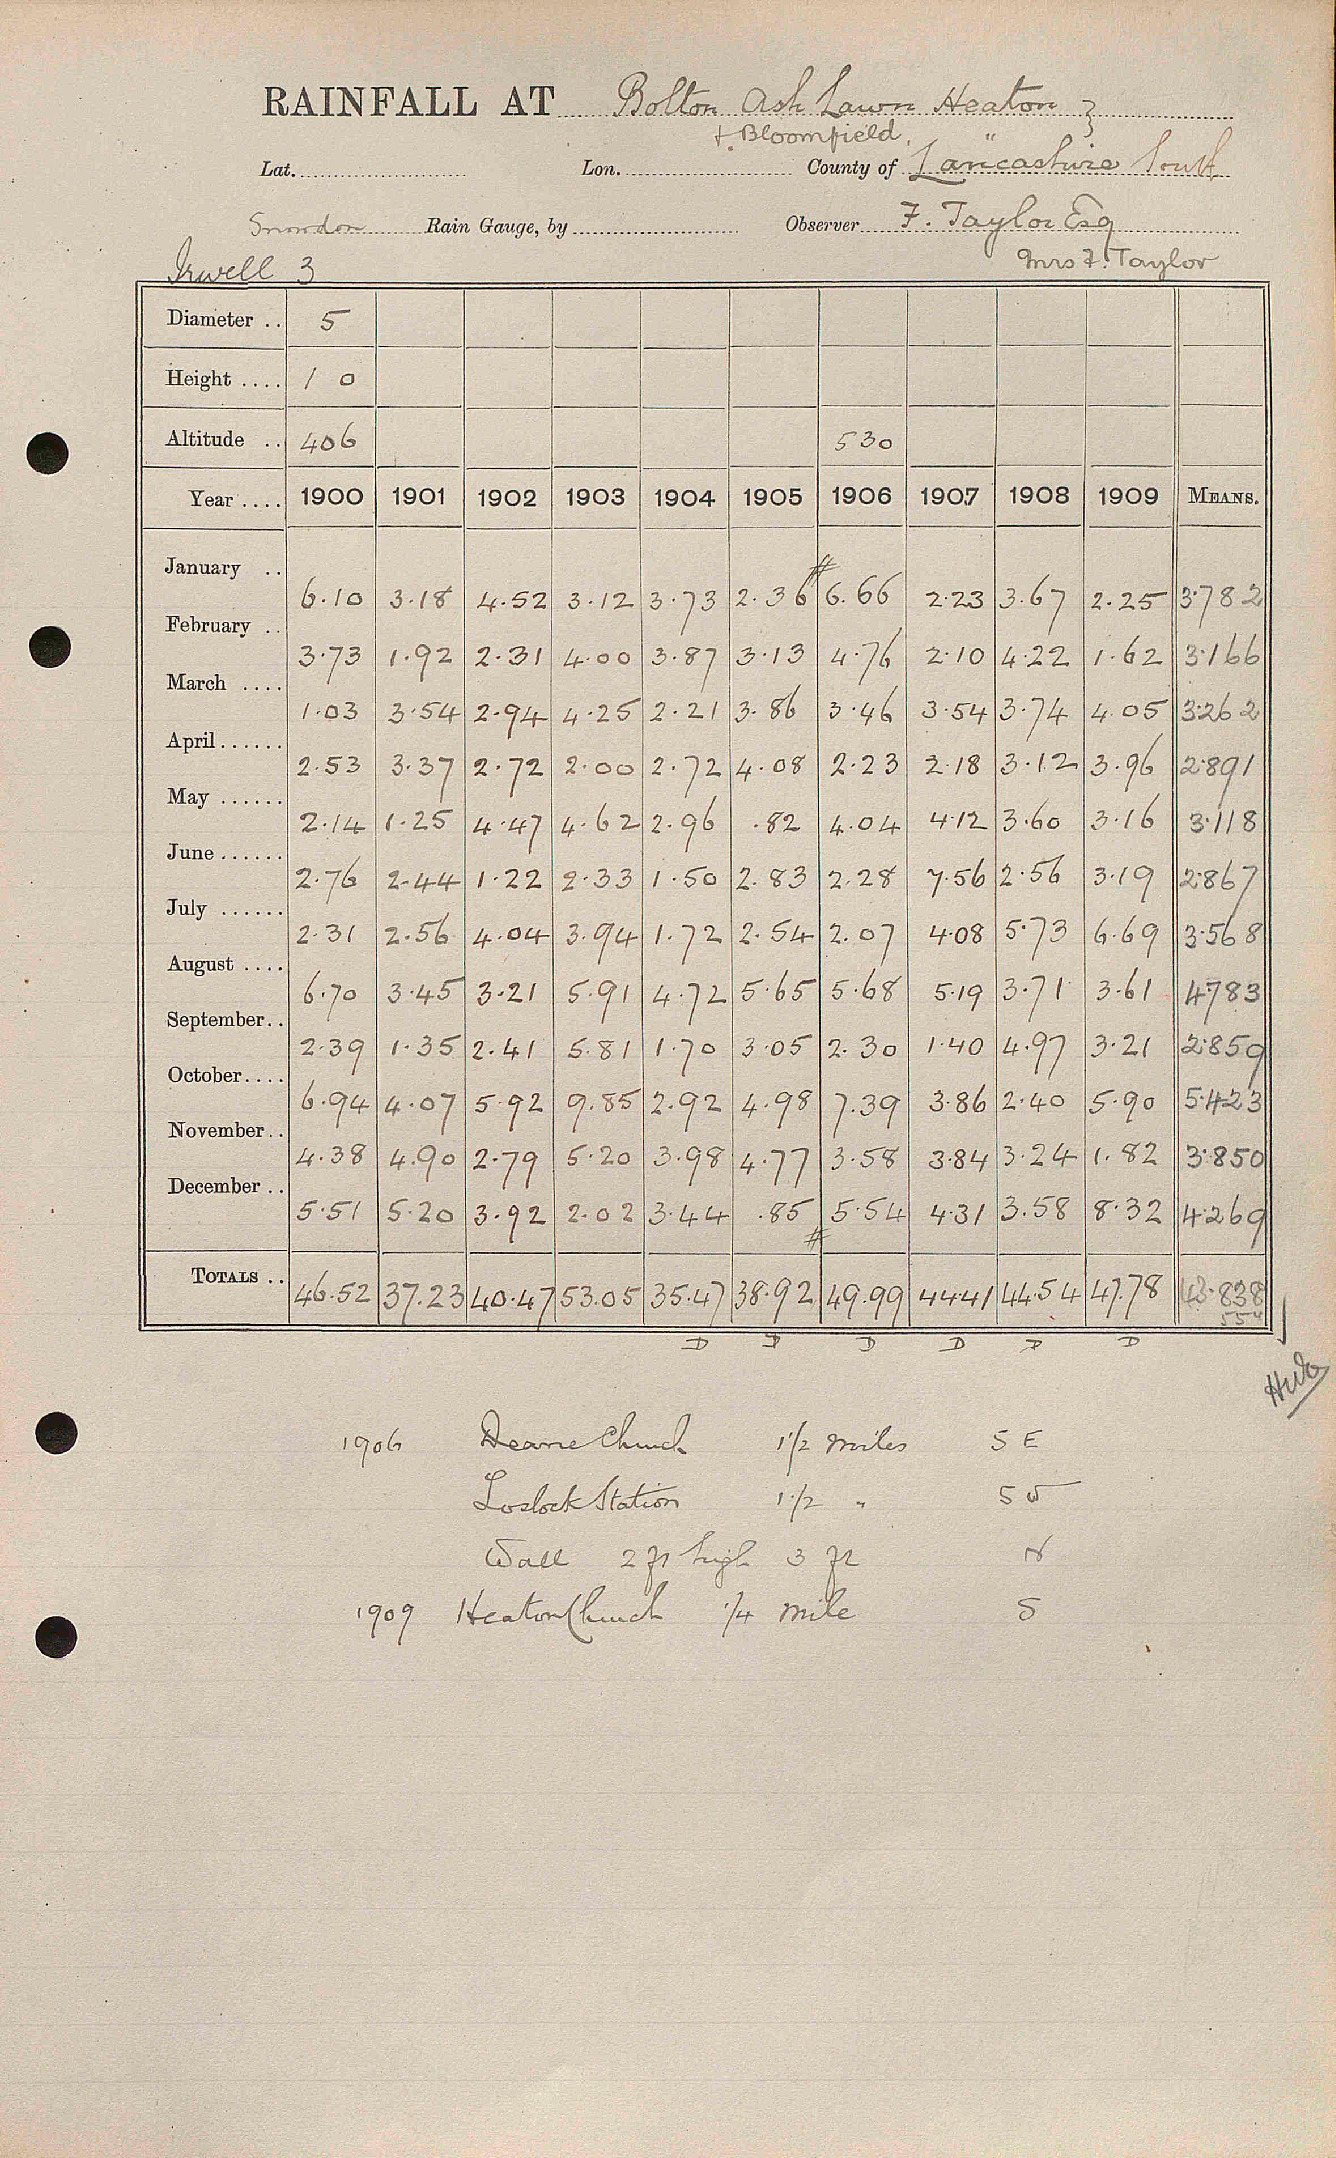 RAINFALL AT Bolton Ash Lawn Heaton }
+. Bloomfield. "
Lat. Lon. County of Lancashire South
Snowdon Rain Gauge, by Observer F. Taylor Esq
Irwell 3 Mrs F. Taylor
Diameter .. 5
Height .... 1 0
Altitude .. 406 530
Year .... 1900 1901 1902 1903 1904 1905 1906 1907 1908 1909 MEANS.
January .. 6.10 3.18 4.52 3.12 3.73 2.36 # 6.66 2.23 3.67 2.25 3.782
February .. 3.73 1.92 2.31 4.00 3.87 3.13 4.76 2.10 4.22 1.62 3.166
March .... 1.03 3.54 2.94 4.25 2.21 3.86 3.46 3.54 3.74 4.05 3.262
April...... 2.53 3.37 2.72 2.00 2.72 4.08 2.23 2.18 3.12 3.96 2.891
May ...... 2.14 1.25 4.47 4.62 2.96 .82 4.04 4.12 3.60 3.16 3.118
June ...... 2.76 2.44 1.22 2.33 1.50 2.83 2.28 7.56 2.56 3.19 2.867
July ...... 2.31 2.56 4.04 3.94 1.72 2.54 2.07 4.08 5.73 6.69 3.568
August .... 6.70 3.45 3.21 5.91 4.72 5.65 5.68 5.19 3.71 3.61 4.783
September.. 2.39 1.35 2.41 5.81 1.70 3.05 2.30 1.40 4.97 3.21 2.859
October.... 6.94 4.07 5.92 9.85 2.92 4.98 7.39 3.86 2.40 5.90 5.423
November.. 4.38 4.90 2.79 5.20 3.98 4.77 3.58 3.84 3.24 1.82 3.850
December .. 5.51 5.20 3.92 2.02 3.44 .85 # 5.54 4.31 3.58 8.32 4.269
TOTALS .. 46.52 37.23 40.47 53.05 35.47 38.92 49.99 44.41 44.54 47.78 43.838
D D D D D D
1906 Deane Church 1 1/2 miles S E
Lostock Station 1 1/2 " S W
Wall 2 ft high 3 ft N
1909 Heaton Church 1/4 mile S